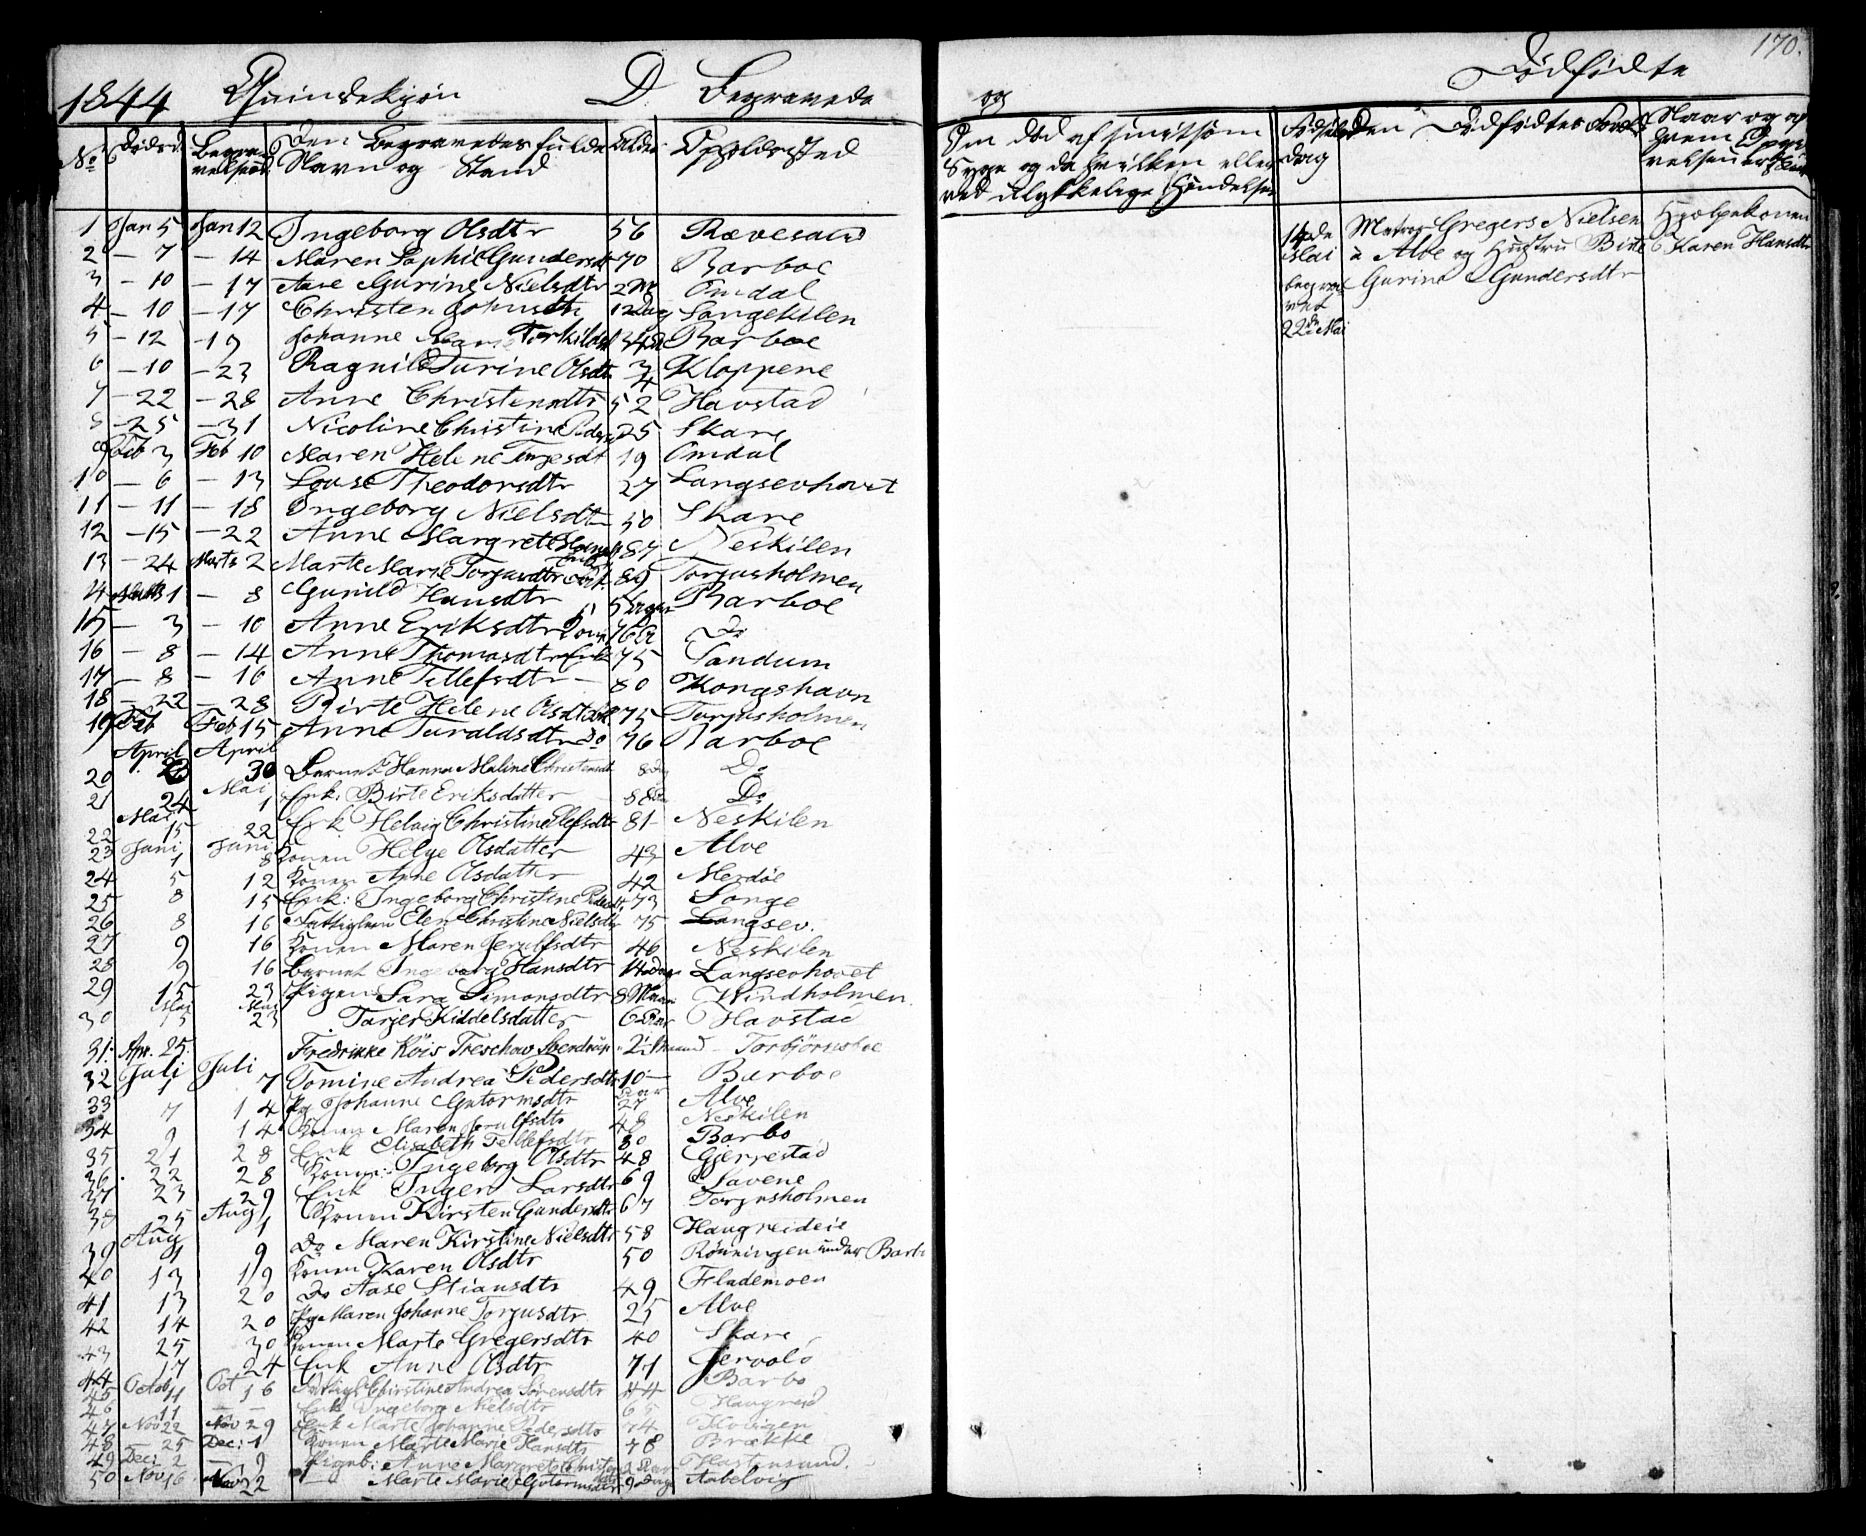 1844 Qvindekjøn D. Begravede
No Døds D. Begravelses D. Den Begravedes fulde Navn og Stand Alder Opholdssted
1 Jan 5 Jan 12 Ingeborg Olsdtr 56 Rævesand
2 - 7 - 14 Maren Sophie Gundersdt 70 Barboe
3 - 10 - 17 Aase Gurine Nielsdtr 2 M Omdal
4 - 10 - 17 Christen Johnsdtr 12 Dag Songekilen
5 - 12 - 19 Johanne Marie Torkildsd Barboe
6 - 10 - 23 Ragnild Turine Olsdtr 3/4 Kloppene
7 - 22 - 28 Anne Christensdtr 52 Havstad
8 - 25 - 31 Nicoline Christine Peders 25 Skare
9 Feb 3 Feb 10 Maren Helene Terjesdt 19 Omdal
10 - 6 - 13 Lovise Theodorsdtr 27 Langsevhovet
11 - 11 - 18 Ingeborg Nielsdtr 50 Skare
12 - 15 - 22 Anne Margrete 87 Neskilen
13 - 24 Marts 2 Marte Marie Torjusdtr 89 Torjusholmen
14 Marts 1 - 8 Gunild Hansdtr 5 Dager Barboe
15 - 3 - 10 Anne Eriksdtr 76 Do
16 - 8 - 14 Anne Thomasdtr Enke 75 Sandum
17 - 8 - 16 Anne Tellefsdtr - 80 Kongshavn
18 - 22 - 28 Birte Helene Olsdtr 75 Torjusholmen
19 Feb Feb 15 Anne Taraldsdtr Do 76 Barboe
April April
20 23 30 Barnet Hanna Maline Christensdt 8 Do
Mai
21 24 1 Enk. Birte Eriksdatter 88 Do
Mai
22 15 22 Enk Helvig Christine Olefsdtr 81 - Neskilen
Juni Juni
23 1 8 Konen Helge Olsdatter 43 Alve
24 5 12 Konen Anne Olsdatter 42 Merdøe
25 8 15 Enk: Ingeborg Christine Pedersdt 73 Songe
26 8 16 Fattiglem Elen Christine Nielsdtr 75 Langsev.
27 9 16 Konen Maren Jerulfsdtr 46 Neskilen
28 9 16 Barnet Ingeborg Hansdtr 14 Dage Langsevhovet
29 15 23 Pigen Sara Simonsdtr 8 Windholmen
Mai Mai
30 15 23 Tarjer Kiddelsdatter 6 Aar Havstad
31. Apr. 25. Fredrikke Röis Treschow Sverdrup 2 Torbjörnsboe
Juli Juli
32 1 7 Tomine Andrea Pedersdtr 10 - Barboe
33 7 14 Pg Johanne Gutormsdtr 27 Alve
34 9 14 Konen Maren Jerulfsdtr 48 Neskilen
35 21 28 Enk Elisabeth Tellefsdtr 80 Barbo
36 22 28 Konen: Ingeborg Olsdtr 48 Gjerrestad
37 23 29 Enk Inger Larsdtr 69 Savene
Aug
38 25 1 Konen Kirsten Gundersdtr 67 Torjusholmen
Aug
39 1 9 Do Maren Kirstine Nielsdtr 58 Haugreideie
40 13 19 Konen Karen Olsdtr 50 Rönningen under Barbo
41 13 20 Do Aase Stiansdtr 49 Flademoen
42 14 20 Pg Maren Johanne Torjusdtr 25 Alve
43 25 30 Konen Marte Gregersdtr 40 Skare
44 17 24 Enk Anne Olsdtr 71 Jervold
45 Octob 11 Oct 16 Christine Andrea Sörensdtr 44 Barbo
46 11 - - Enk Ingeborg Nielsdtr 65 Haugreid
47 Nov 22 Nov 29 Enk Marte Johanne Pedersdtr 74
48 - 25 Dec: 1 Konen Marte Marie Hansdtr 48 Brække
49 Dec: 2 - 9 Pigeb: Anne Margrete Hastensund.
50 Nov 16 Nov 22 - Marte Marie Gutormsdtr 9 Dag Aabelvig
170.
og Dødfødte
Om død af smitsom Syge og da hvilken eller ved ulykkelige Hendelser
Fødsels dag
Den Dødfødtes Forældre
Naar og af hvem
14de Mai begravet 22de Mai
Matros Gregers Nielsen
Alve og Hustru Birte
Gurine Gundersdtr
Hjelpekonen
Karen Hansdtr